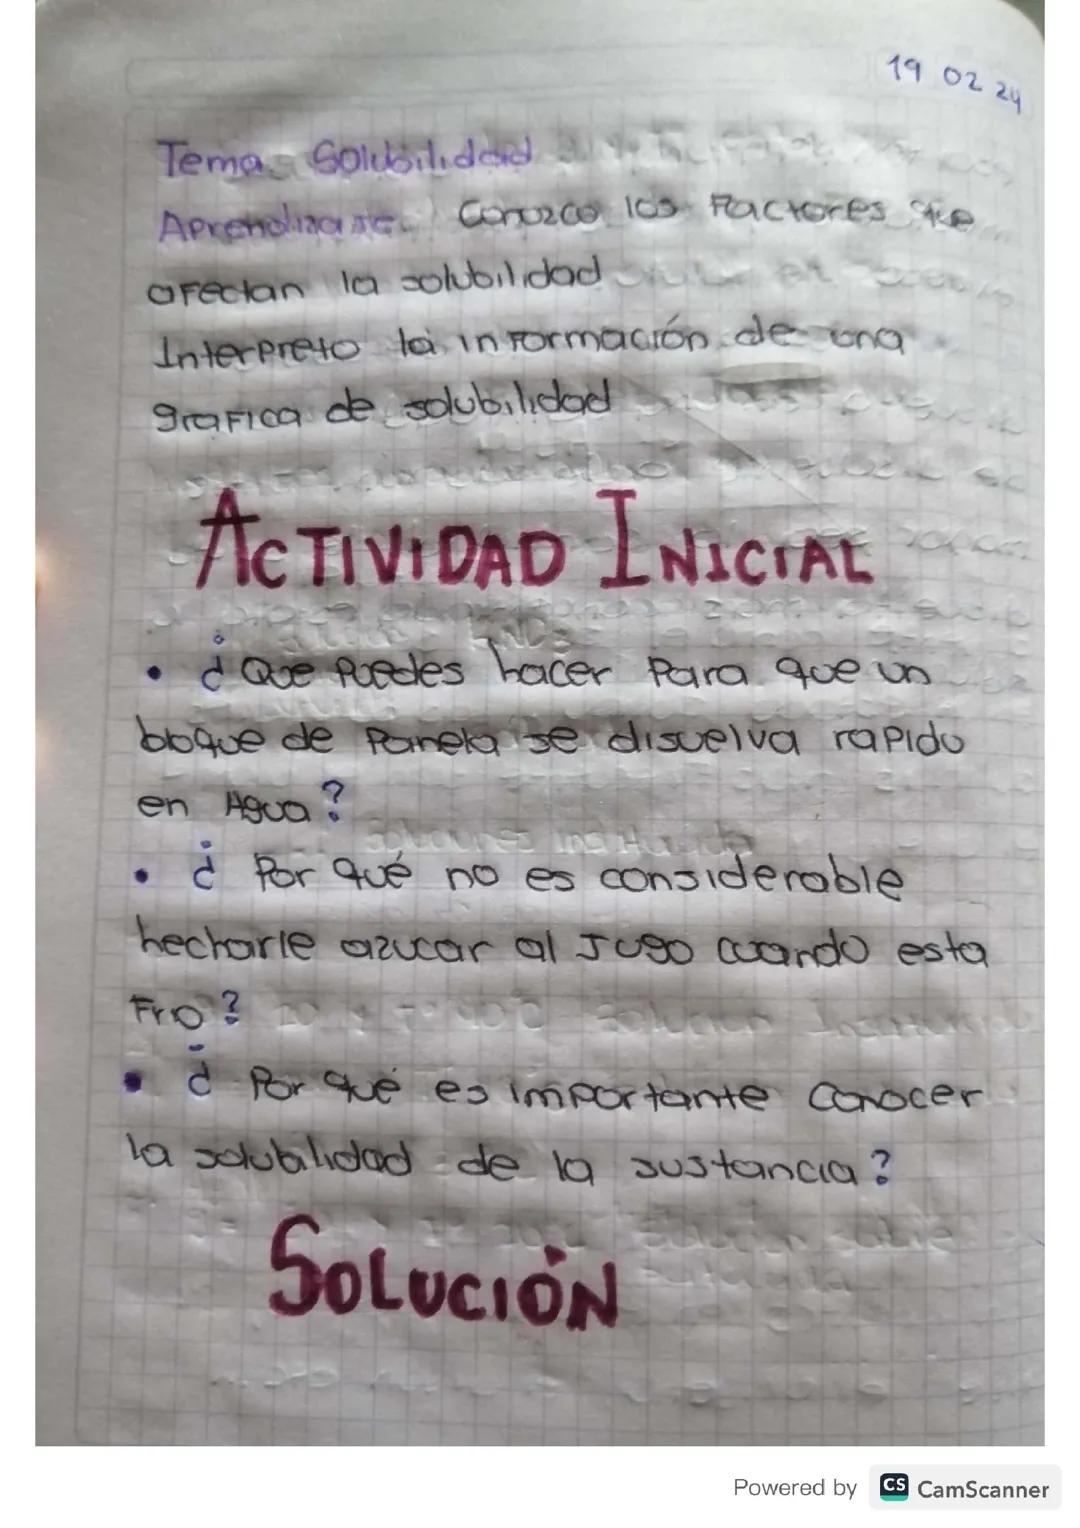 19 02 24
Tema Solubilidad
Aprendizaje. Conozco los Factores que
aFectan la solubilidad
Interpreto la inFormación de una
graFica de solubilidad
ACTIVIDAD INICIAL
• ¿Que Puedes hacer Para que un
bloque de Panela se disuelva rapido
en Agua?
• ¿ Por qué no es considerable
hecharle azucar al Jugo cuando esta
Frio?
• ¿ Por qué es importante Conocer
la solubilidad de la sustancia?
SOLUCIÓN
Powered by CS CamScanner